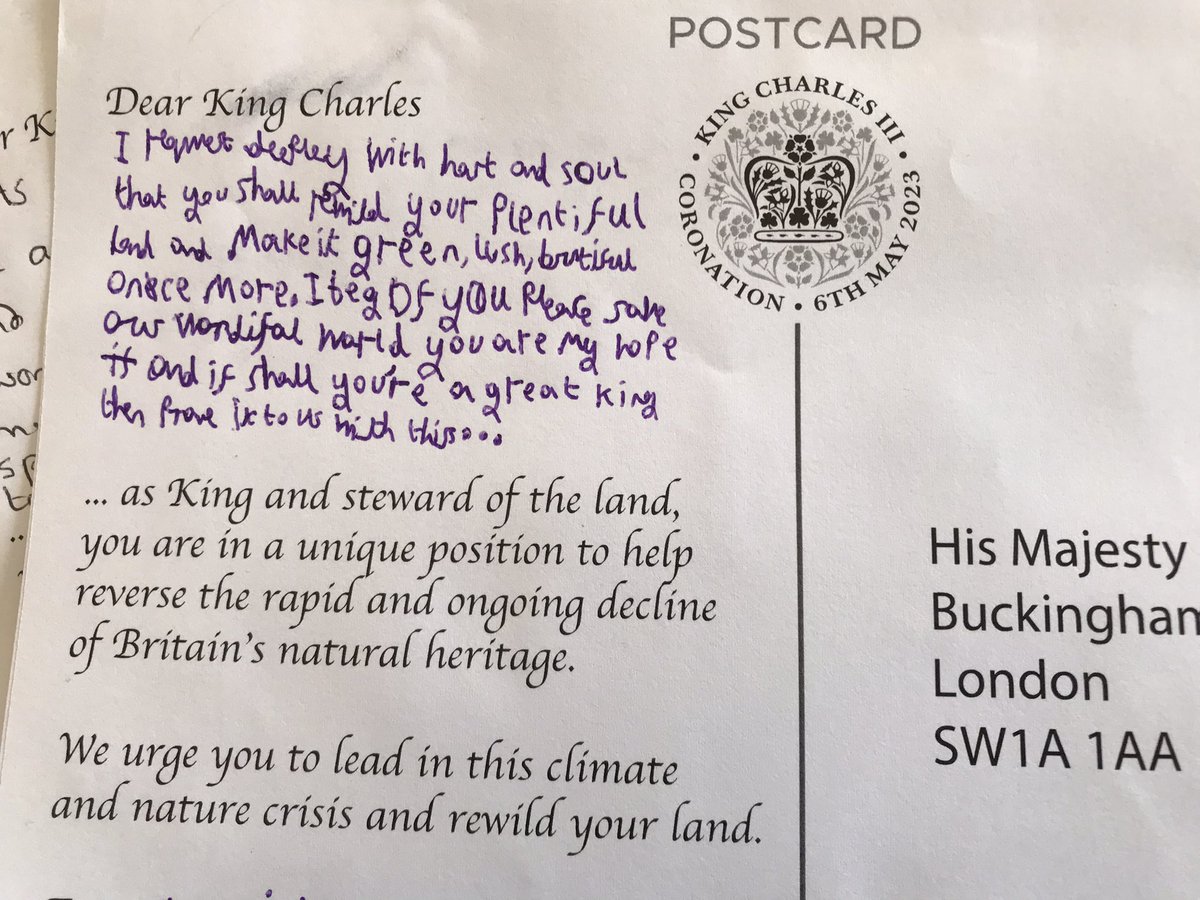 POSTCARD
KING CHARLES III • CORONATION • 6TH MAY 2023 •
Dear King Charles
I requet deepley with hart and soul
that you shall rewild your plentiful
land and Make it green, lush, butiful
once More. I beg Of yoU Please save
our wondiful world you are My hope
it and if shall you're a great King
then Prove it to us with this...
... as King and steward of the land,
you are in a unique position to help
reverse the rapid and ongoing decline
of Britain's natural heritage.
We urge you to lead in this climate
and nature crisis and rewild your land.
His Majesty
Buckingham
London
SW1A 1AA